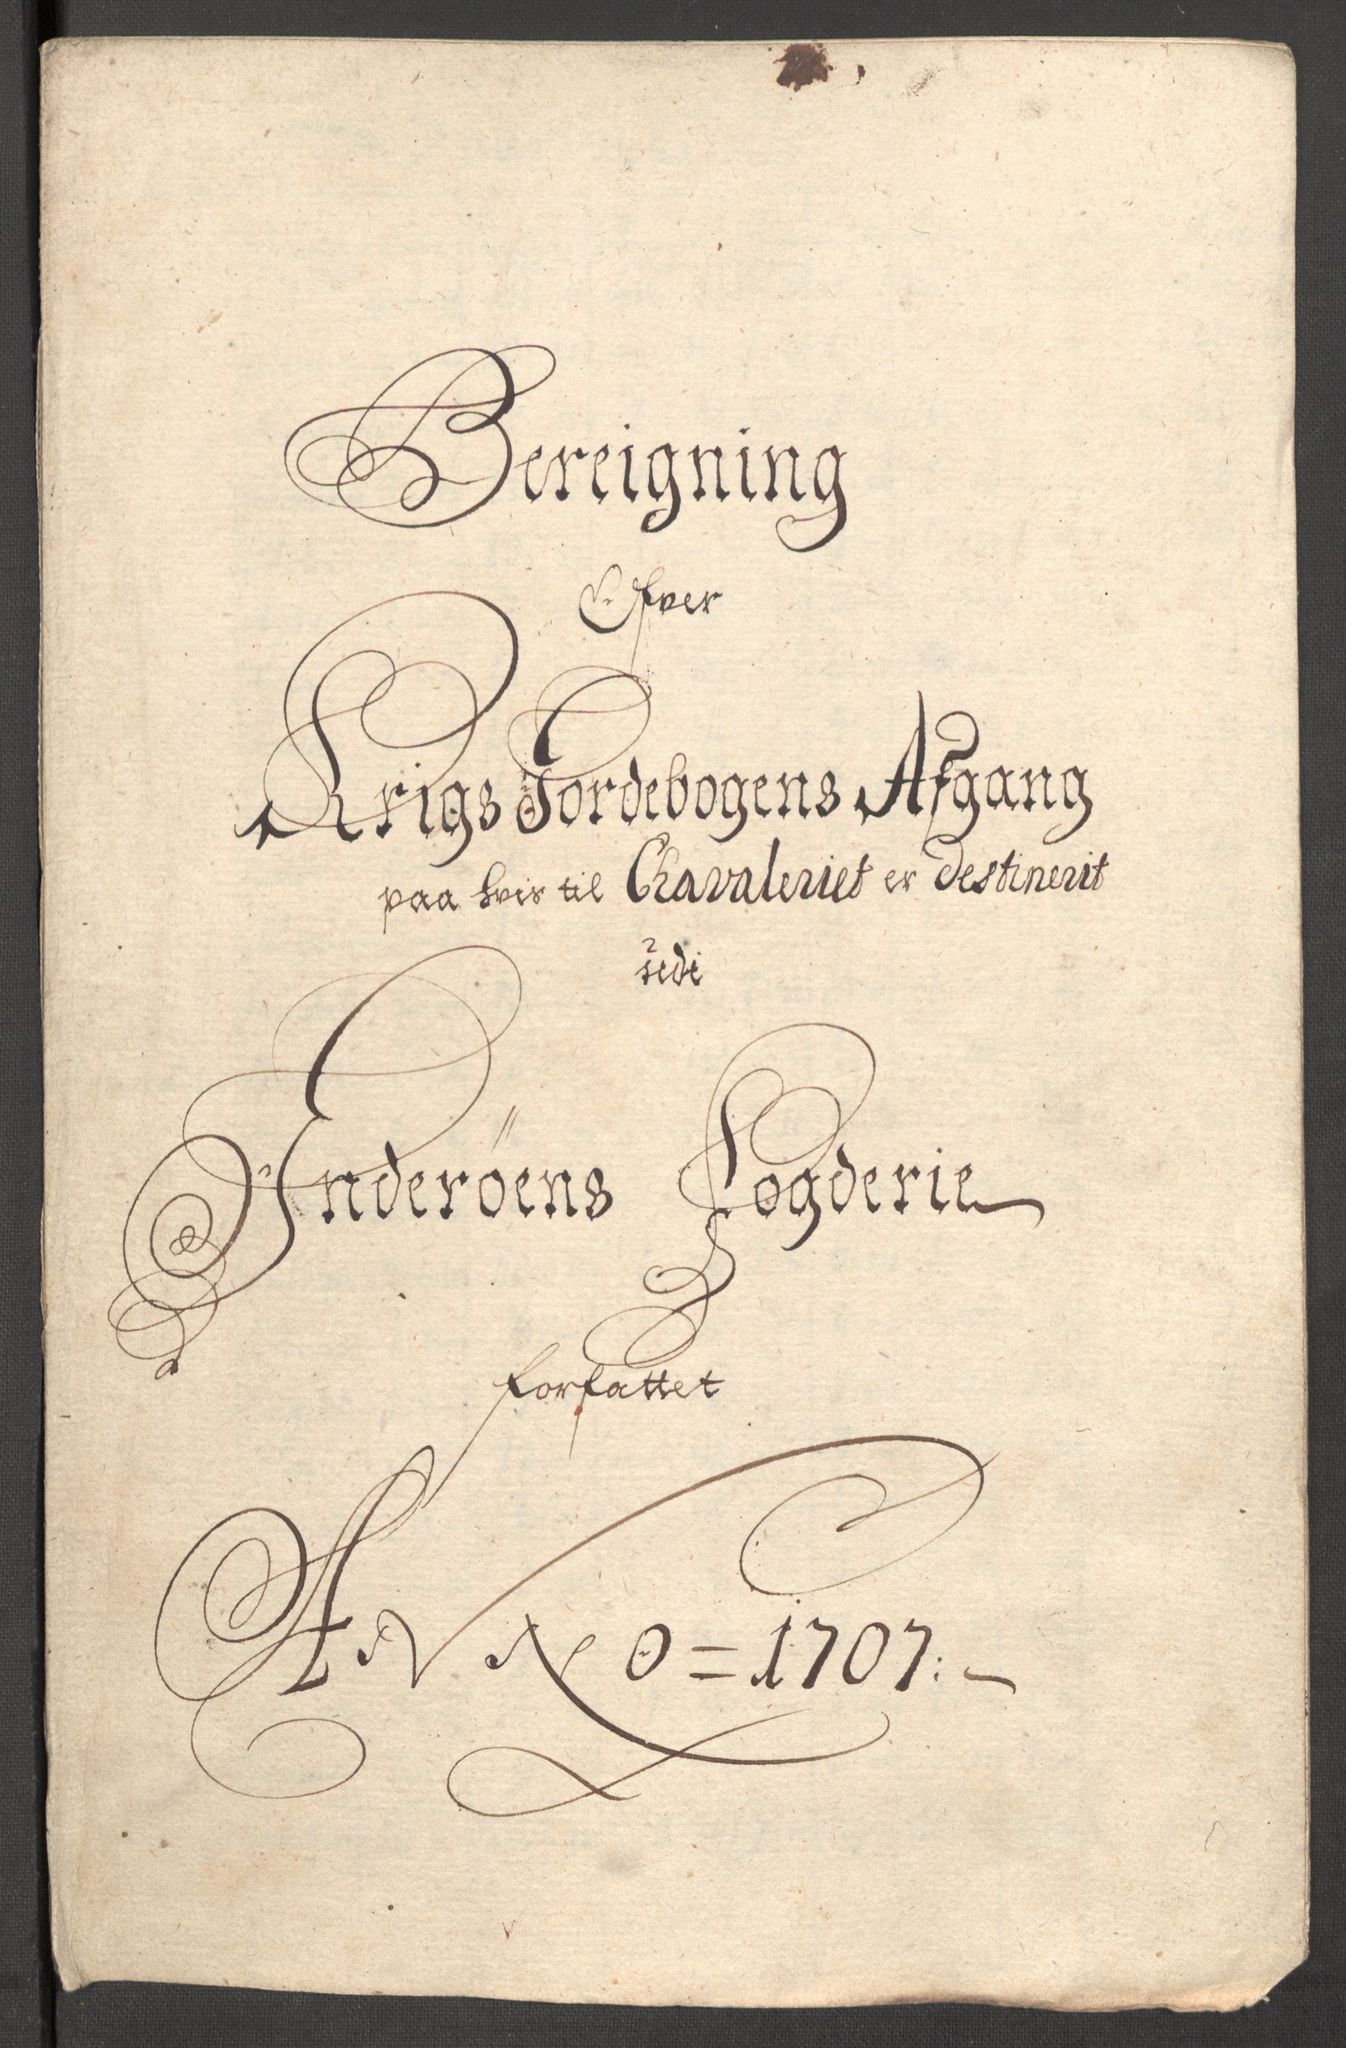 Bereigning
Ofver
Krigs Jordebogens Afgang
paa hvis til Chavaleriet er destinerit
udi
Inderöens Fogderie
forfattet
ANNO = 1707: